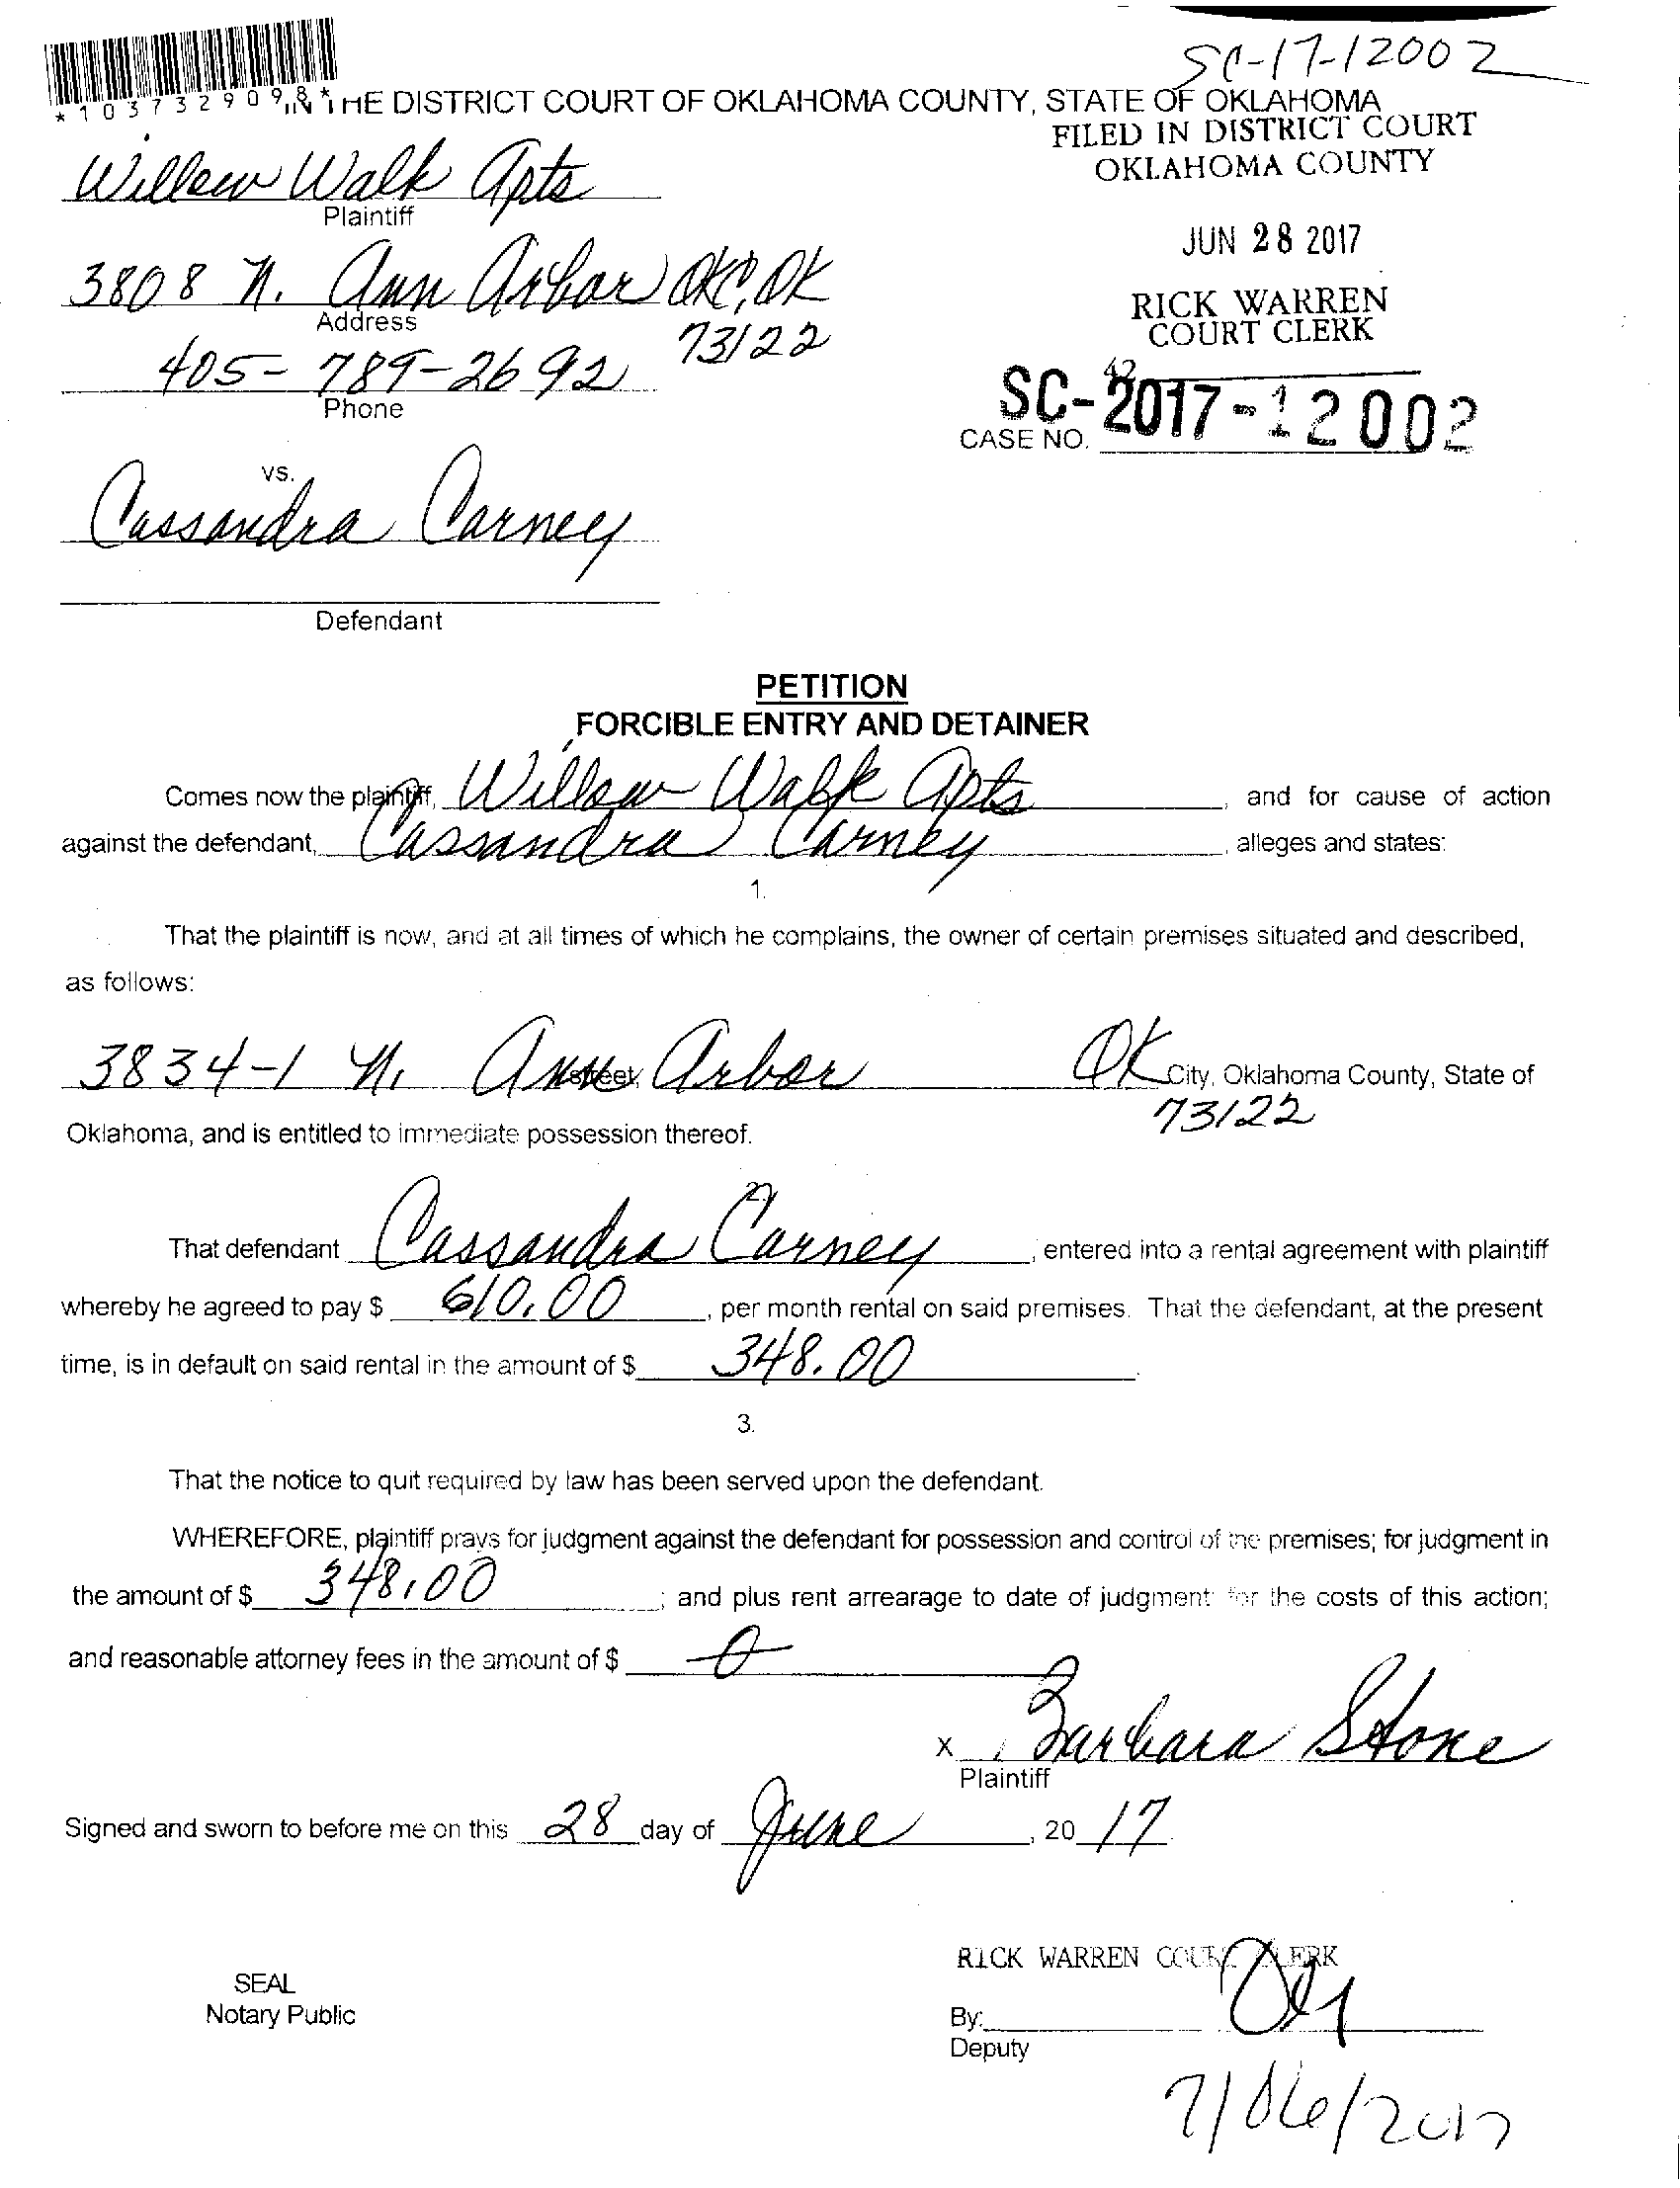 SC-17-12002
*1037329098*
IN THE DISTRICT COURT OF OKLAHOMA COUNTY, STATE OF OKLAHOMA
FILED IN DISTRICT COURT
OKLAHOMA COUNTY
Willow Walk Apts
Plaintiff
JUN 28 2017
3808 N. Ann Arbor OKC, OK
Address
73122
RICK WARREN
COURT CLERK
405-789-2692
Phone
42
SC-2017-12002
CASE NO.
vs.
Cassandra Carney
Defendant
PETITION
FORCIBLE ENTRY AND DETAINER
Comes now the plaintiff, Willow Walk Apts, and for cause of action
against the defendant, Cassandra Carney, alleges and states:
1.
That the plaintiff is now, and at all times of which he complains, the owner of certain premises situated and described,
as follows:
3834-1 N. Ann Arbor Street, OK City, Oklahoma County, State of
73122
Oklahoma, and is entitled to immediate possession thereof.
2.
That defendant Cassandra Carney, entered into a rental agreement with plaintiff
whereby he agreed to pay $ 610.00, per month rental on said premises. That the defendant, at the present
time, is in default on said rental in the amount of $ 348.00.
3.
That the notice to quit required by law has been served upon the defendant.
WHEREFORE, plaintiff prays for judgment against the defendant for possession and control of the premises; for judgment in
the amount of $ 348.00; and plus rent arrearage to date of judgment; for the costs of this action;
and reasonable attorney fees in the amount of $ 0
x Barbara Stone
Plaintiff
Signed and sworn to before me on this 28 day of June, 20 17.
RICK WARREN COURT CLERK
SEAL
Notary Public
By:
Deputy
7/06/2017